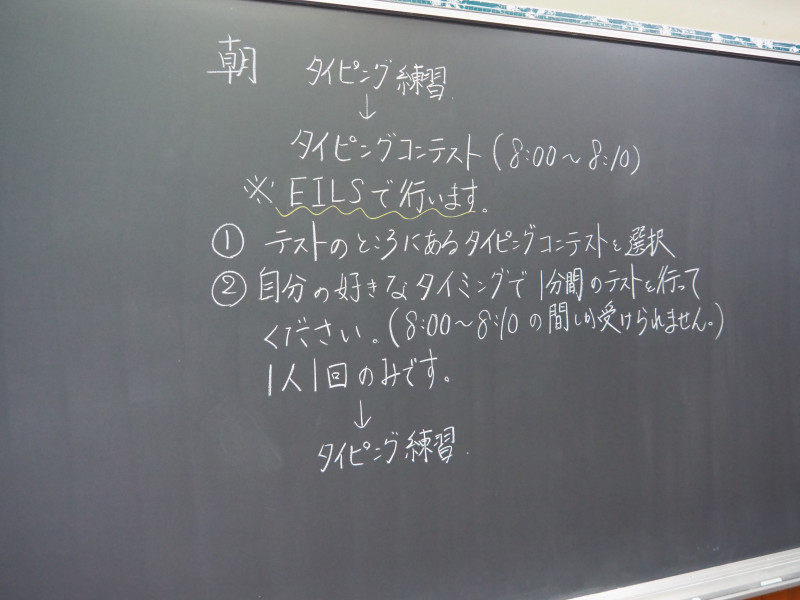 朝 タイピング練習.
↓
タイピングコンテスト(8:00～8:10)
※EILSで行います。
① テストのところにあるタイピングコンテストを選択
② 自分の好きなタイミングで1分間のテストを行って
ください。(8:00～8:10の間しか受けられません。)
1人1回のみです。
↓
タイピング練習.